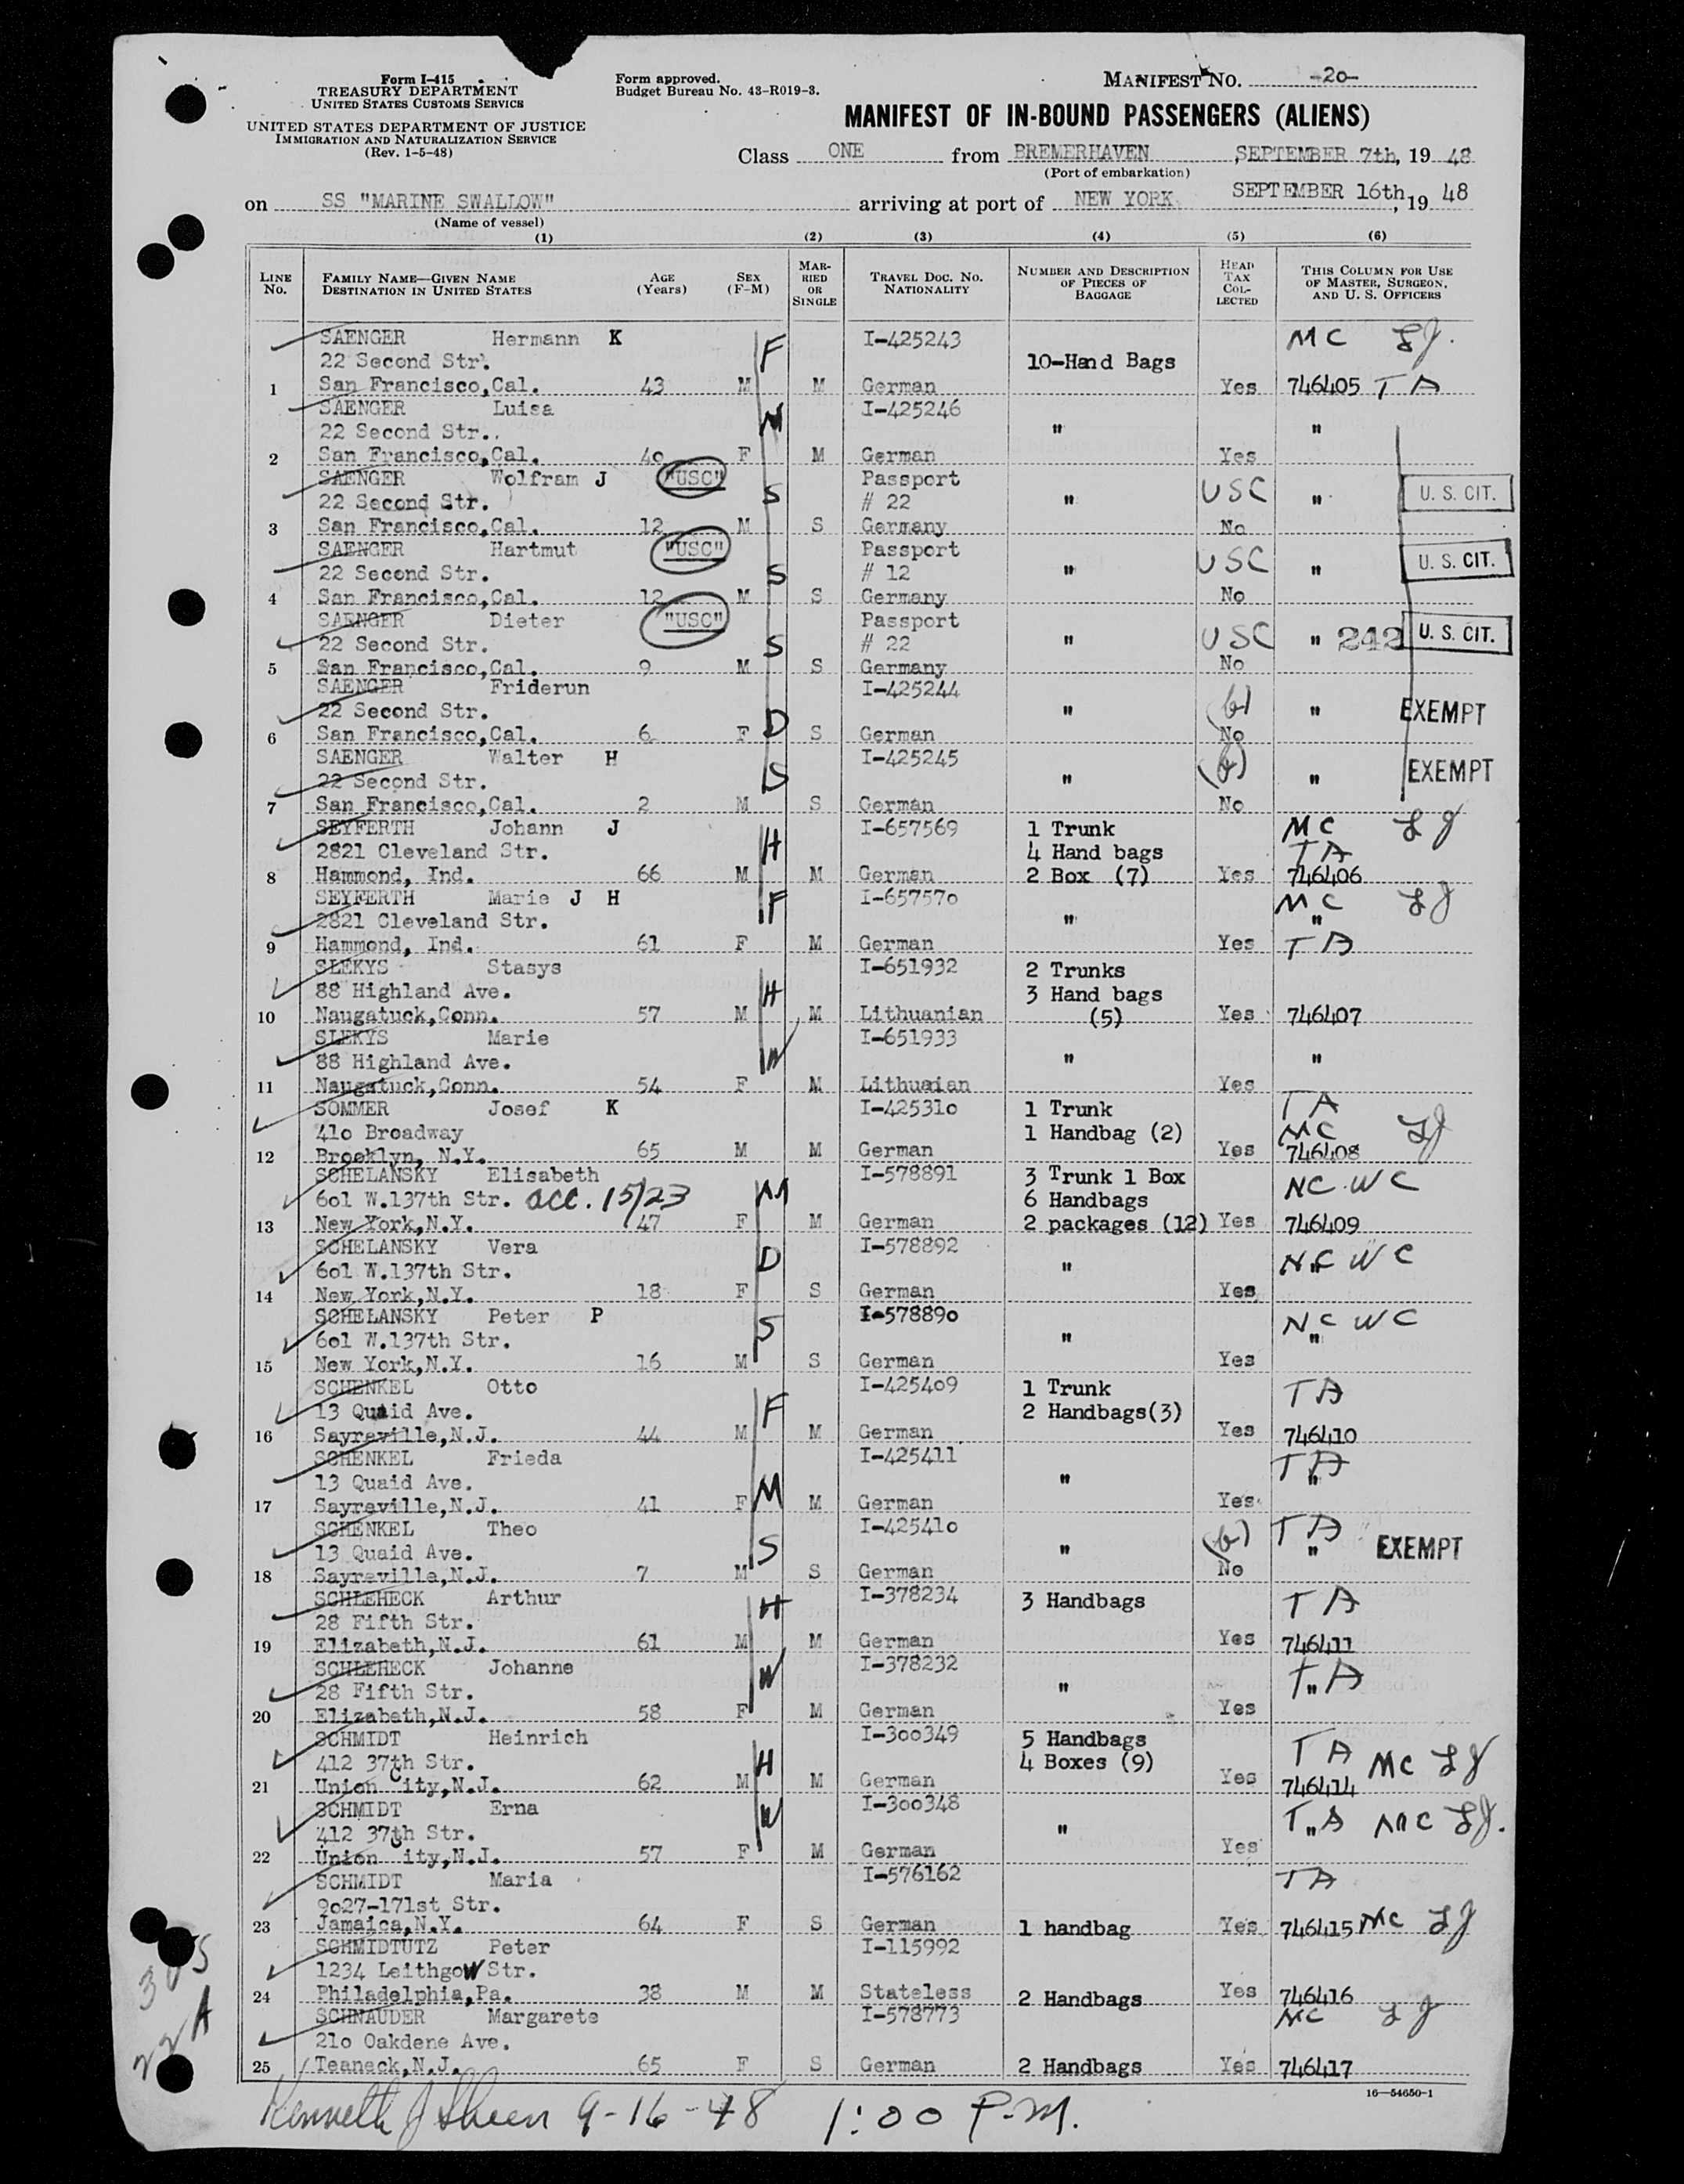 Form I-415
TREASURY DEPARTMENT
UNITED STATES CUSTOMS SERVICE
UNITED STATES DEPARTMENT OF JUSTICE
IMMIGRATION AND NATURALIZATION SERVICE
(Rev. 1-5-48)
Form approved.
Budget Bureau No. 43-R019-3.
MANIFEST NO. -20-
MANIFEST OF IN-BOUND PASSENGERS (ALIENS)
Class ONE from BREMERHAVEN, SEPTEMBER 7th, 19 48
(Port of embarkation)
on SS "MARINE SWALLOW" arriving at port of NEW YORK SEPTEMBER 16th, 19 48
(Name of vessel)
(1) (2) (3) (4) (5) (6)
LINE No. FAMILY NAME—GIVEN NAME DESTINATION IN UNITED STATES AGE (Years) SEX (F-M) MARRIED OR SINGLE TRAVEL DOC. NO. NATIONALITY NUMBER AND DESCRIPTION OF PIECES OF BAGGAGE HEAD TAX COLLECTED THIS COLUMN FOR USE OF MASTER, SURGEON, AND U. S. OFFICERS
SAENGER Hermann K F I-425243 MC LJ.
22 Second Str. 10-Hand Bags
1 San Francisco,Cal. 43 M M German Yes 746405 T A
SAENGER Luisa M I-425246
22 Second Str.. " "
2 San Francisco,Cal. 40 F M German Yes
SAENGER Wolfram J "USC" S Passport USC
22 Second Str. # 22 " " U. S. CIT.
3 San Francisco,Cal. 12 M S Germany No
SAENGER Hartmut "USC" S Passport USC
22 Second Str. # 12 " " U. S. CIT.
4 San Francisco,Cal. 12 M S Germany No
SAENGER Dieter "USC" S Passport USC
22 Second Str. # 22 " " 242 U. S. CIT.
5 San Francisco,Cal. 9 M S Germany No
SAENGER Friderun D I-425244 (b)
22 Second Str. " " EXEMPT
6 San Francisco,Cal. 6 F S German No
SAENGER Walter H S I-425245 (b)
22 Second Str. " " EXEMPT
7 San Francisco,Cal. 2 M S German No
SEYFERTH Johann J H I-657569 1 Trunk MC LJ
2821 Cleveland Str. 4 Hand bags TA
8 Hammond, Ind. 66 M M German 2 Box (7) Yes 746406
SEYFERTH Marie J H F I-657570 MC LJ
2821 Cleveland Str. " "
9 Hammond, Ind. 61 F M German Yes TA
SLEKYS Stasys H I-651932 2 Trunks
88 Highland Ave. 3 Hand bags
10 Naugatuck,Conn. 57 M M Lithuanian (5) Yes 746407
SLEKYS Marie W I-651933
88 Highland Ave. " "
11 Naugatuck,Conn. 54 F M Lithuaian Yes
SOMMER Josef K I-425310 1 Trunk TA
410 Broadway 1 Handbag (2) MC LJ
12 Brooklyn, N.Y. 65 M M German Yes 746408
SCHELANSKY Elisabeth M I-578891 3 Trunk 1 Box NC WC
601 W.137th Str. acc. 15/23 6 Handbags
13 New York,N.Y. 47 F M German 2 packages (12) Yes 746409
SCHELANSKY Vera D I-578892 NC WC
601 W.137th Str. " "
14 New York,N.Y. 18 F S German Yes
SCHELANSKY Peter P S I-578890 NC WC
601 W.137th Str. " "
15 New York,N.Y. 16 M S German Yes
SCHENKEL Otto F I-425409 1 Trunk TA
13 Quaid Ave. 2 Handbags(3)
16 Sayreville,N.J. 44 M M German Yes 746410
SCHENKEL Frieda M I-425411 TA
13 Quaid Ave. " "
17 Sayreville,N.J. 41 F M German Yes
SCHENKEL Theo S I-425410 (b) TA
13 Quaid Ave. " " EXEMPT
18 Sayreville,N.J. 7 M S German No
SCHLEHECK Arthur H I-378234 3 Handbags TA
28 Fifth Str.
19 Elizabeth,N.J. 61 M M German Yes 746411
SCHLEHECK Johanne W I-378232 TA
28 Fifth Str. " "
20 Elizabeth,N.J. 58 F M German Yes
SCHMIDT Heinrich H I-300349 5 Handbags TA MC LJ
412 37th Str. 4 Boxes (9)
21 Union City,N.J. 62 M M German Yes 746414
SCHMIDT Erna W I-300348 TA MC LJ.
412 37th Str. " "
22 Union City,N.J. 57 F M German Yes
SCHMIDT Maria I-576162 TA
9027-171st Str.
23 Jamaica,N.Y. 64 F S German 1 handbag Yes 746415 MC LJ
SCHMIDTUTZ Peter I-115992
1234 Leithgow Str.
24 Philadelphia,Pa. 38 M M Stateless 2 Handbags Yes 746416
SCHNAUDER Margarete I-578773 MC LJ
210 Oakdene Ave.
25 Teaneck,N.J. 65 F S German 2 Handbags Yes 746417
16—54650-1
Kenneth J Sheen 9-16-48 1:00 P.M.
22 A